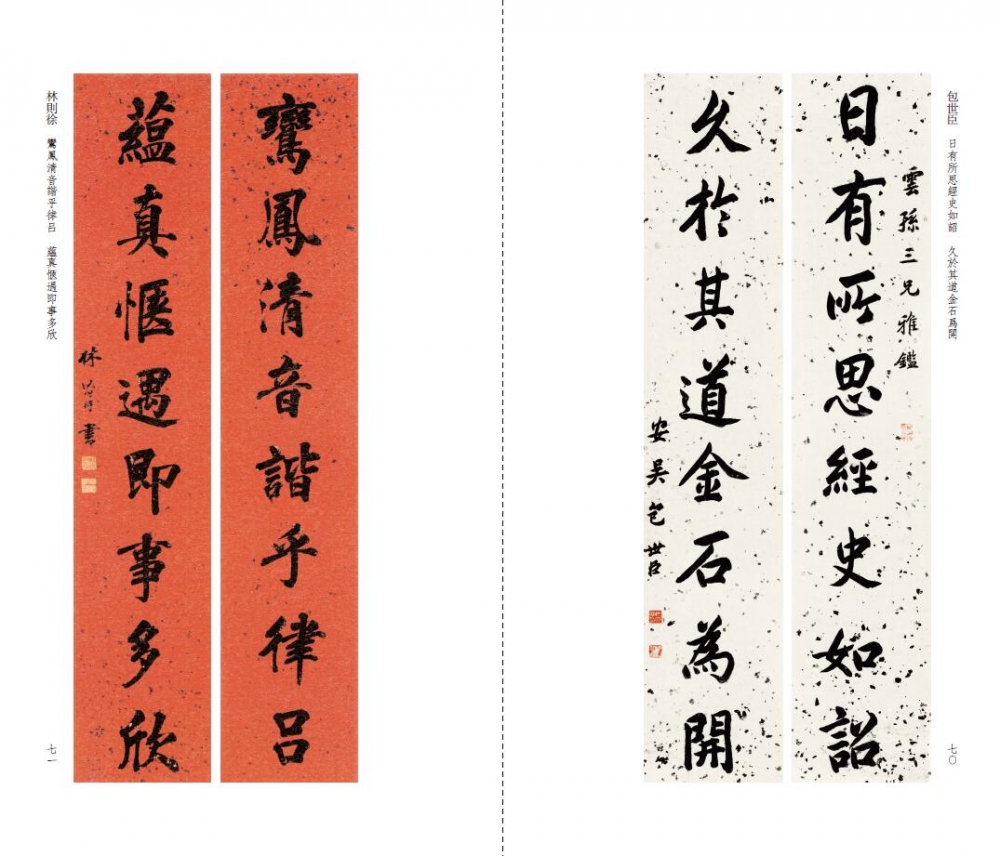 包世臣 日有所思經史如詔 久於其道金石爲開
雲孫三兄雅鑑
日有所思經史如詔
久於其道金石為開
安吳包世臣
七〇
鸞鳳清音諧乎律呂
蘊真愜遇即事多欣
林則徐書
林則徐 鸞鳳清音諧乎律呂 蘊真愜遇即事多欣
七一